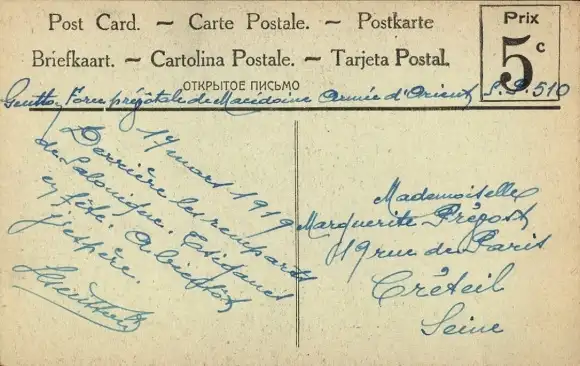 Post Card. – Carte Postale. – Postkarte
Briefkaart. – Cartolina Postale. – Tarjeta Postal.
ОТКРЫТОЕ ПИСЬМО
Prix
5c
de Macédoine Armée d'Orient S.P. 510
17 mars 1919
Derrière les remparts
de Salonique. Tsiganes
en fête. A bientôt
j'espère.
Mademoiselle
Marguerite Prévost
19 rue de Paris
Créteil
Seine